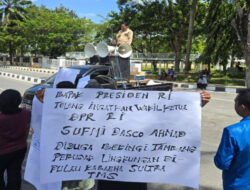 BAPAK PRESIDEN RI
TOLONG INGATKAN WAKIL KETUA
DPR RI
SUFMI DASCO AHMAD
DIDUGA BEKINGI TAMBANG
PERUSAK LINGKUNGAN DI
PULAU KABAENA SULTRA
TMS